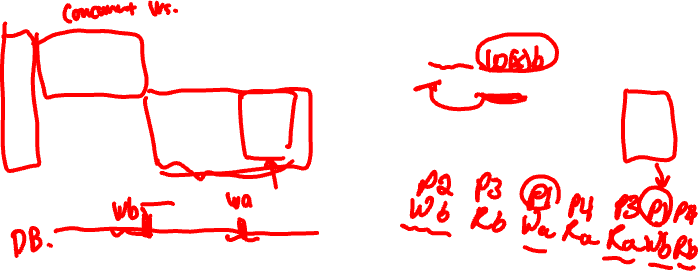 Concurrent Vs.
Wb
Wa
DB.
P2 P3 P1 P4 P3 P1 P4
Wb Rb Wa Ra Ra Wb Rb